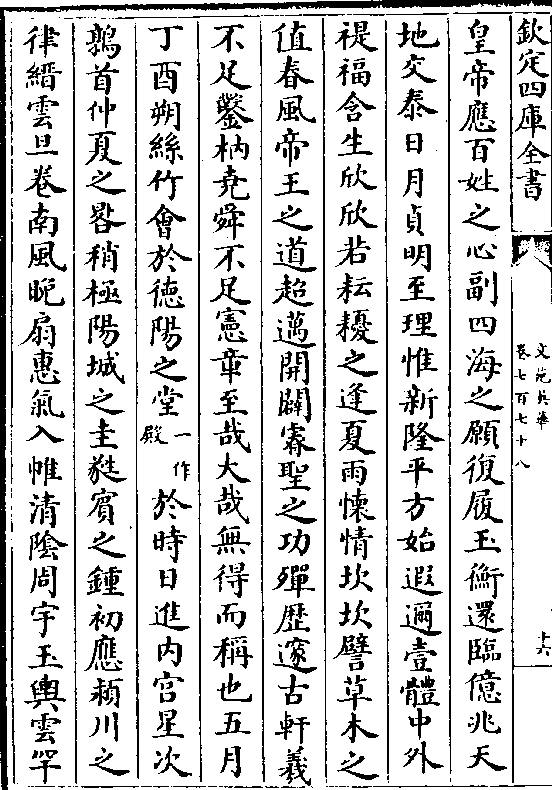 欽定四庫全書
文苑英華
卷七百七十八
十六
皇帝應百姓之心副四海之願復履玉衡還臨億兆天
地交泰日月貞明至理惟新隆平方始遐邇壹體中外
禔福含生欣欣若耘耰之逢夏雨懷情坎坎譬草木之
值春風帝王之道超邁開闢睿聖之功殫歴邃古軒羲
不足鑿枘堯舜不足憲章至哉大哉無得而稱也五月
丁酉朔絲竹會於德陽之堂一作殿於時日進内宫星次
鶉首仲夏之晷稍極陽城之圭蕤賓之鍾初應潁川之
律縉雲旦卷南風晚扇惠氣入帷清陰周宇玉輿雲罕